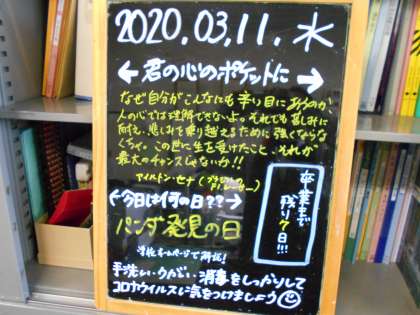 2020.03.11.水
←君の心のポケットに→
なぜ自分がこんなにも辛い目にあうのか
人の心では理解できないよ。それでも苦しみに
耐え、悲しみを乗り越えるために強くならな
くちゃ。この世に生を受けたこと、それが
最大のチャンスじゃないか!!
アイルトン・セナ(ブラジルのF1レーサー)
←今日は何の日???→
パンダ発見の日
学校ホームページで解説!
卒業まで
残り7日!!!
手洗い・うがい、消毒をしっかりして
コロナウイルスに気をつけましょう